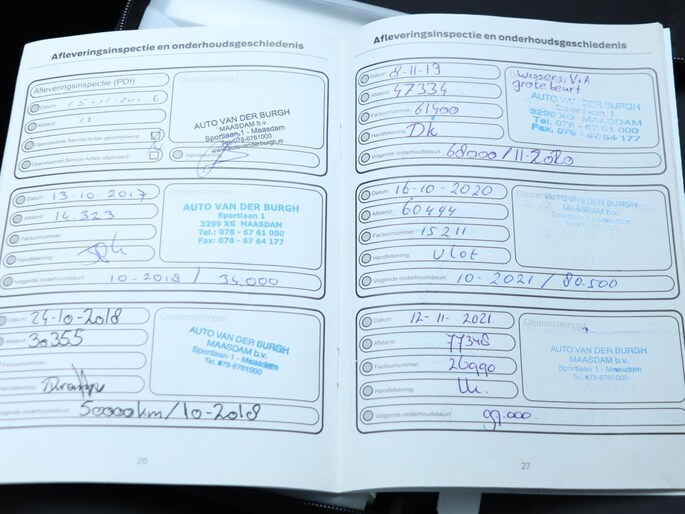 Afleveringsinspectie en onderhoudsgeschiedenis
Afleveringsinspectie (PDI)
Datum: 15-11-2016
Afstand: 12
Openstaande Service-Acties gecontroleerd
Openstaande Service-Acties uitgevoerd
Handtekening:
AUTO VAN DER BURGH
MAASDAM b.v.
Sportlaan 1 - Maasdam
078-6761000
www.autovanderburgh.nl
Datum: 13-10-2017
Afstand: 14.323
Factuurnummer:
Handtekening:
Volgende onderhoudsbeurt: 10-2018 / 34.000
AUTO VAN DER BURGH
Sportlaan 1
3299 XG MAASDAM
Tel.: 078 - 67 61 000
Fax: 078 - 67 64 177
Datum: 24-10-2018
Afstand: 30355
Factuurnummer:
Handtekening:
Volgende onderhoudsbeurt: 50000km/10-2018
Dealerstempel
AUTO VAN DER BURGH
MAASDAM b.v.
Sportlaan 1 - Maasdam
Tel. 078-6761000
26
Afleveringsinspectie en onderhoudsgeschiedenis
Datum: 8-11-19
Afstand: 47334
Factuurnummer: 61400
Handtekening: Dk
Volgende onderhoudsbeurt: 68000/11-2020
Wissers, V+A
grote beurt
AUTO VAN DER BURGH
Sportlaan 1
3299 XG MAASDAM
Tel. 078 - 67 61 000
Fax. 078 - 67 64 177
Datum: 16-10-2020
Afstand: 60494
Factuurnummer: 15211
Handtekening: Vlot
Volgende onderhoudsbeurt: 10-2021 / 80.500
AUTO VAN DER BURGH
MAASDAM b.v.
Sportlaan 1 - Maasdam
Tel. 078-6761000
Datum: 12-11-2021
Afstand: 77348
Factuurnummer: 26990
Handtekening:
Volgende onderhoudsbeurt: 97.000.
Dealerstempel
AUTO VAN DER BURGH
MAASDAM b.v.
Sportlaan 1 - Maasdam
Tel. 078-6761000
27